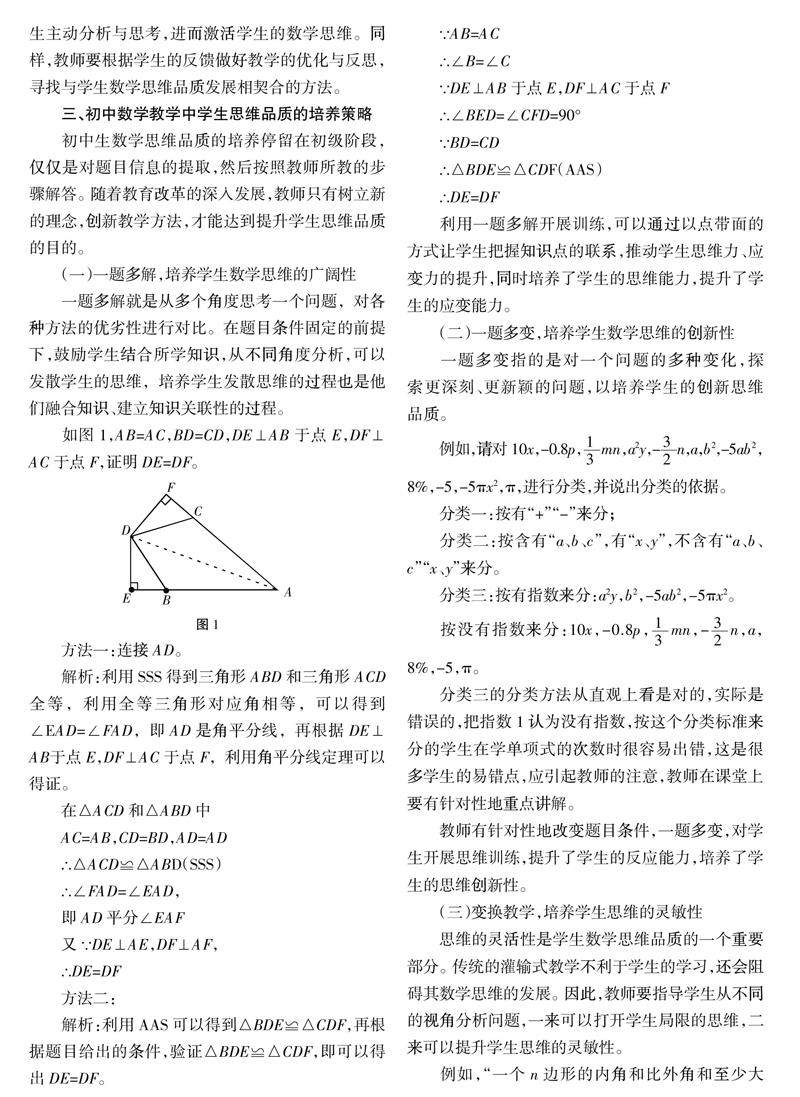 生主动分析与思考,进而激活学生的数学思维。同
样,教师要根据学生的反馈做好教学的优化与反思,
寻找与学生数学思维品质发展相契合的方法。
三、初中数学教学中学生思维品质的培养策略
初中生数学思维品质的培养停留在初级阶段,
仅仅是对题目信息的提取,然后按照教师所教的步
骤解答。随着教育改革的深入发展,教师只有树立新
的理念,创新教学方法,才能达到提升学生思维品质
的目的。
(一)一题多解,培养学生数学思维的广阔性
一题多解就是从多个角度思考一个问题，对各
种方法的优劣性进行对比。在题目条件固定的前提
下,鼓励学生结合所学知识,从不同角度分析,可以
发散学生的思维，培养学生发散思维的过程也是他
们融合知识、建立知识关联性的过程。
如图 1,AB=AC,BD=CD,DE⊥AB 于点 E,DF⊥
AC 于点 F,证明 DE=DF。
F
C
D
E
B
A
图 1
方法一:连接 AD。
解析:利用 SSS 得到三角形 ABD 和三角形 ACD
全等，利用全等三角形对应角相等，可以得到
∠EAD=∠FAD，即 AD 是角平分线，再根据 DE⊥
AB于点 E,DF⊥AC 于点 F，利用角平分线定理可以
得证。
在△ACD 和△ABD 中
AC=AB,CD=BD,AD=AD
∴△ACD≌△ABD(SSS)
∴∠FAD=∠EAD,
即 AD 平分∠EAF
又∵DE⊥AE,DF⊥AF,
∴DE=DF
方法二:
解析:利用 AAS 可以得到△BDE≌△CDF,再根
据题目给出的条件,验证△BDE≌△CDF,即可以得
出 DE=DF。
∵AB=AC
∴∠B=∠C
∵DE⊥AB 于点 E,DF⊥AC 于点 F
∴∠BED=∠CFD=90°
∵BD=CD
∴△BDE≌△CDF(AAS)
∴DE=DF
利用一题多解开展训练,可以通过以点带面的
方式让学生把握知识点的联系,推动学生思维力、应
变力的提升,同时培养了学生的思维能力,提升了学
生的应变能力。
(二)一题多变,培养学生数学思维的创新性
一题多变指的是对一个问题的多种变化,探
索更深刻、更新颖的问题,以培养学生的创新思维
品质。
例如,请对 10x,-0.8p,1/3 mn,a²y,-3/2 n,a,b²,-5ab²,
8%,-5,-5πx²,π,进行分类,并说出分类的依据。
分类一:按有“+”“-”来分;
分类二:按含有“a、b、c”,有“x、y”,不含有“a、b、
c”“x、y”来分。
分类三:按有指数来分:a²y,b²,-5ab²,-5πx²。
按没有指数来分:10x,-0.8p,1/3 mn,-3/2 n,a,
8%,-5,π。
分类三的分类方法从直观上看是对的,实际是
错误的,把指数 1 认为没有指数,按这个分类标准来
分的学生在学单项式的次数时很容易出错,这是很
多学生的易错点,应引起教师的注意,教师在课堂上
要有针对性地重点讲解。
教师有针对性地改变题目条件,一题多变,对学
生开展思维训练,提升了学生的反应能力,培养了学
生的思维创新性。
(三)变换教学,培养学生思维的灵敏性
思维的灵活性是学生数学思维品质的一个重要
部分。传统的灌输式教学不利于学生的学习,还会阻
碍其数学思维的发展。因此,教师要指导学生从不同
的视角分析问题,一来可以打开学生局限的思维,二
来可以提升学生思维的灵敏性。
例如,“一个 n 边形的内角和比外角和至少大